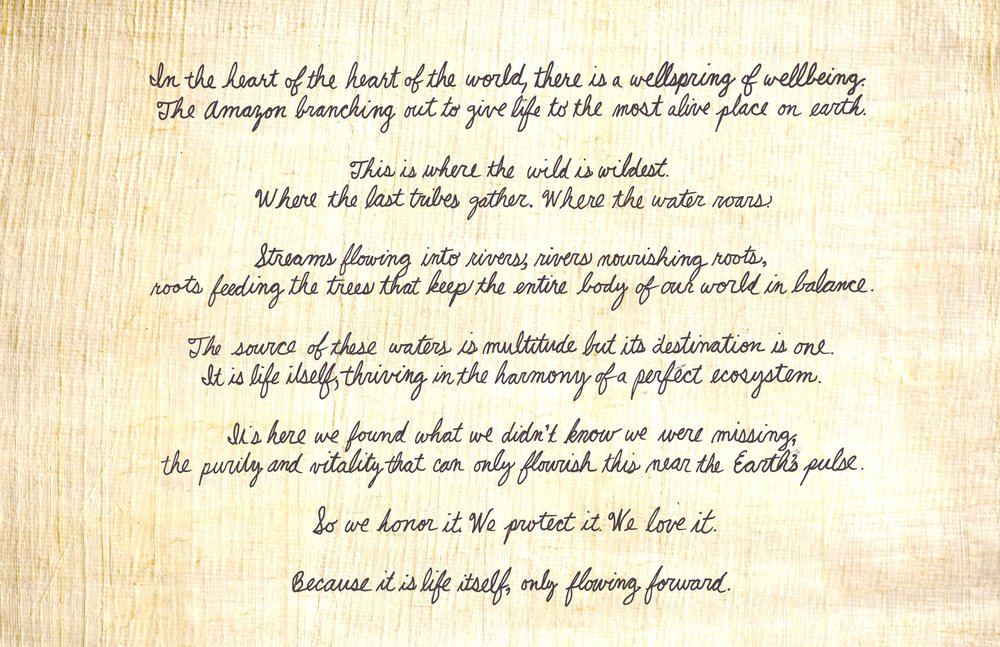 In the heart of the heart of the world, there is a wellspring of wellbeing.
The Amazon branching out to give life to the most alive place on earth.
This is where the wild is wildest.
Where the last tribes gather. Where the water roars.
Streams flowing into rivers, rivers nourishing roots,
roots feeding the trees that keep the entire body of our world in balance.
The source of these waters is multitude but its destination is one.
It is life itself, thriving in the harmony of a perfect ecosystem.
It's here we found what we didn't know we were missing,
the purity and vitality that can only flourish this near the Earth's pulse.
So we honor it. We protect it. We love it.
Because it is life itself, only flowing forward.